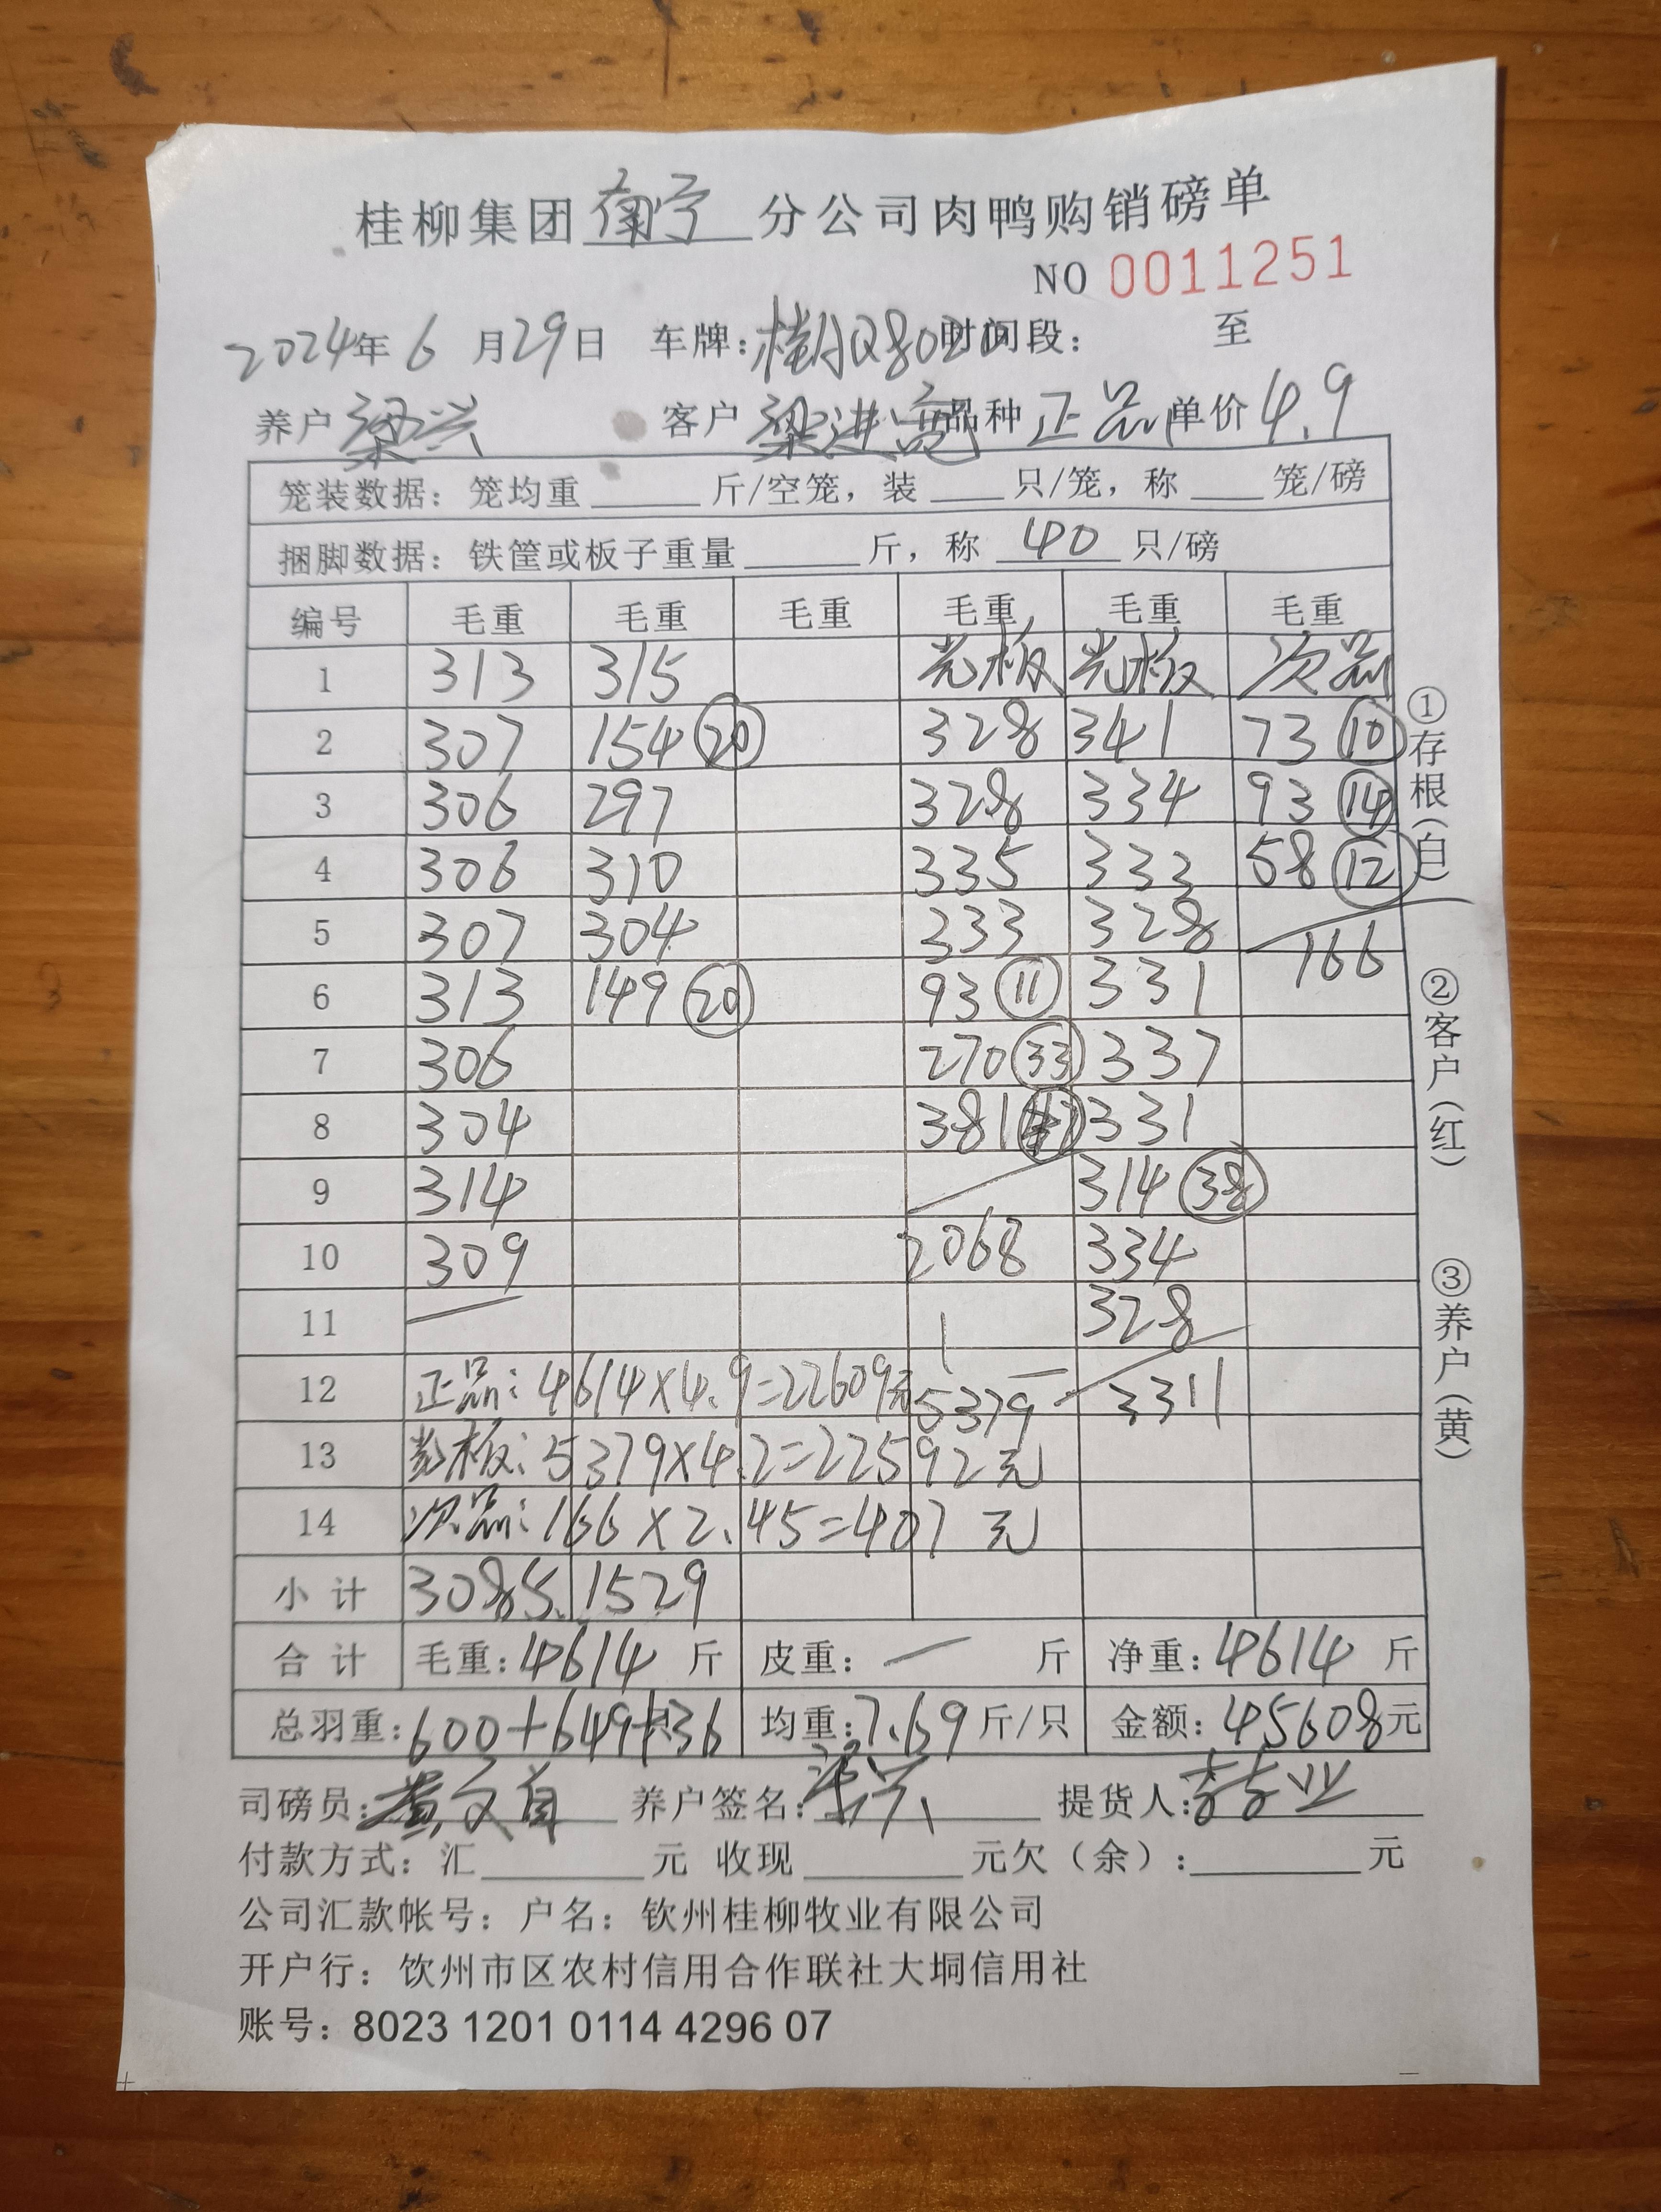 桂柳集团 南宁 分公司肉鸭购销磅单
NO 0011251
2024年 6 月 29 日 车牌: 桂AQ80 时间段: 至
养户 梁兴 客户 梁进 品种 正品 单价 4.9
笼装数据: 笼均重 斤/空笼, 装 只/笼, 称 笼/磅
捆脚数据: 铁筐或板子重量 斤, 称 40 只/磅
编号 毛重 毛重 毛重 毛重 毛重 毛重
1 313 315 光板 光板 次品
2 307 154 ⑳ 328 341 73 ⑩
3 306 297 328 334 93 ⑭
4 306 310 335 333 58 ⑫
5 307 304 333 328
6 313 149 ⑳ 93 ⑪ 331 166
7 306 270 ㉝ 337
8 304 381 331
9 314 314 ㊳
10 309 2068 334
11 328
12 正品: 4614×4.9=22609元 5379 — 3311
13 光板: 5379×4.2=22592元
14 次品: 166×2.45=407 元
小计 3085 1529
合计 毛重: 4614 斤 皮重: — 斤 净重: 4614 斤
总羽重: 600+649+36 均重: 7.69 斤/只 金额: 45608元
司磅员: 黄文 养户签名: 梁兴 提货人: 业
付款方式: 汇 元 收现 元欠(余): 元
公司汇款帐号: 户名: 钦州桂柳牧业有限公司
开户行: 饮州市区农村信用合作联社大垌信用社
账号: 8023 1201 0114 4296 07
①存根(白)
②客户(红)
③养户(黄)